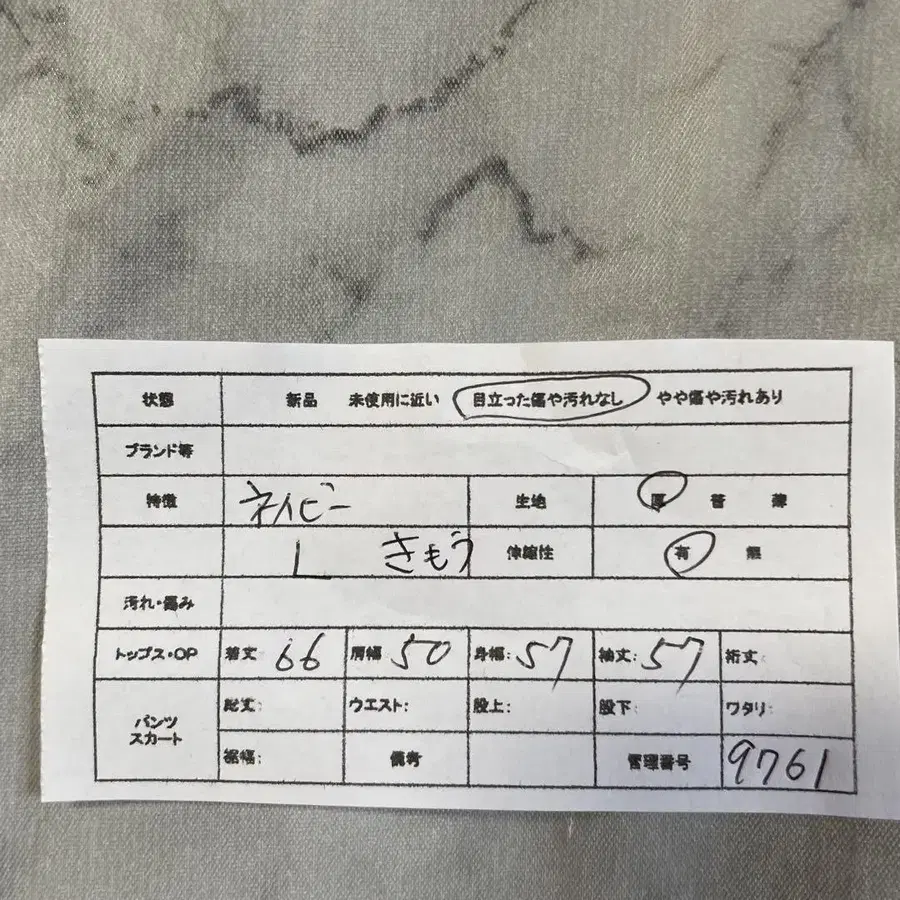 状態 新品 未使用に近い 目立った傷や汚れなし やや傷や汚れあり
ブランド等
特徴 ネイビー 生地 厚 普 薄
L きもう 伸縮性 有 無
汚れ・傷み
トップス・OP 着丈: 66 肩幅: 50 身幅: 57 袖丈: 57 裄丈:
パンツ スカート 総丈: ウエスト: 股上: 股下: ワタリ:
裾幅: 備考 管理番号 9761